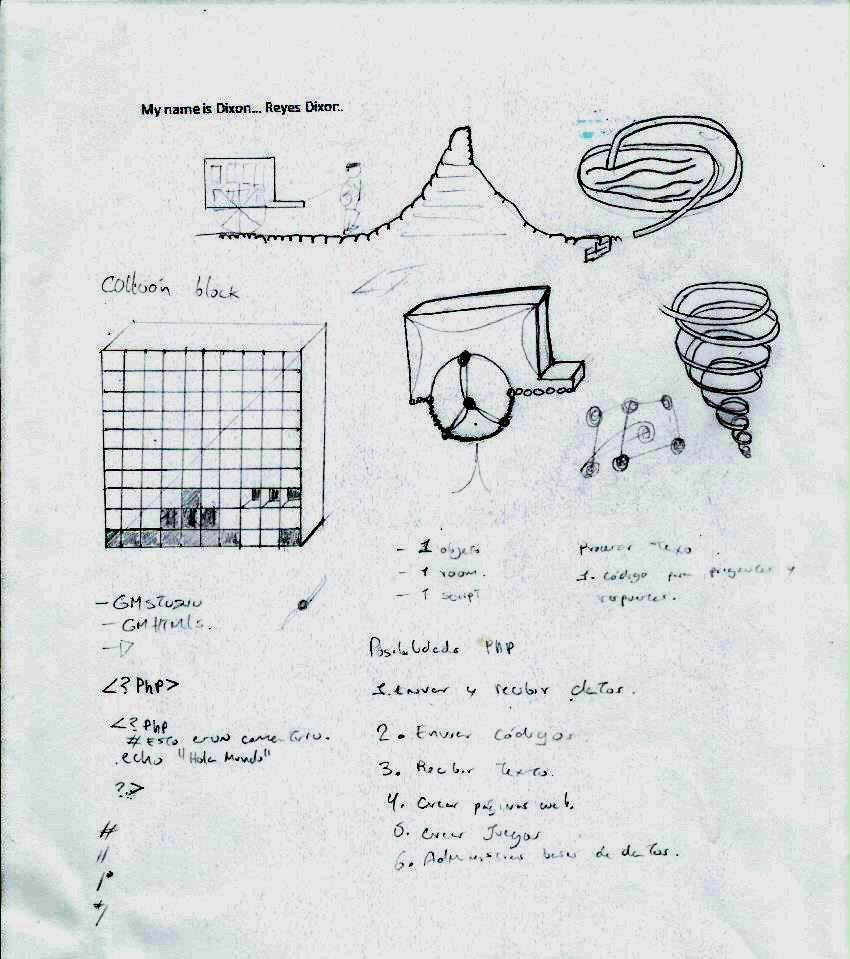 My name is Dixon... Reyes Dixor..
block
- 1 objeto
- 1 room.
- 1 script
Procesar Texo
1. Código para preguntas y
respuestas.
- GMstudio
- GMHTML5.
<?Php>
<?Php
# Esto es un comentario.
echo "Hola Mundo"
?>
#
//
/*
*/
Posibilidades PHP
1. enviar y recibir datos.
2. Enviar códigos
3. Recibir Texto.
4. Crear páginas web.
5. Crear Juegos
6. Administrar bases de datos.